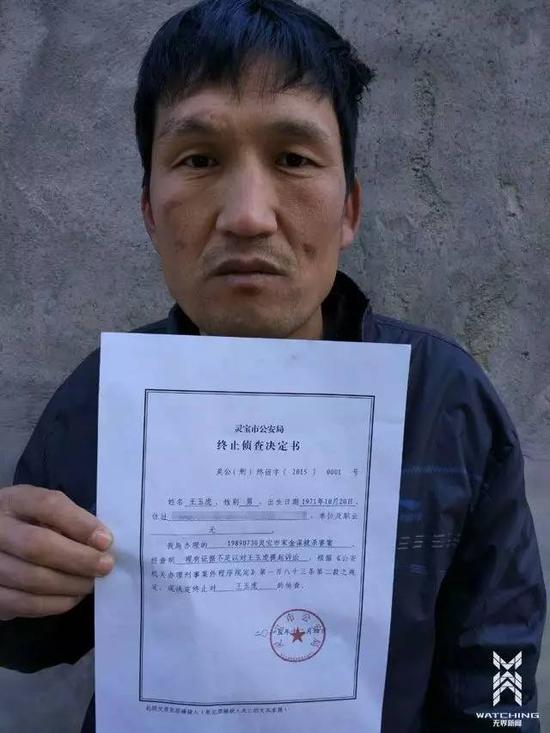 灵宝市公安局
终止侦查决定书
灵公（刑）终侦字〔2015〕0001 号
姓名 王玉虎，性别 男，出生日期 1971年10月20日，
住址 单位及职业
无
我局办理的 19890730灵宝市宋金保被杀害案
经查明 现有证据不足以对王玉虎提起诉讼，根据《公安
机关办理刑事案件程序规定》第一百八十三条第二款之规
定，现决定终止对 王玉虎 的侦查。
二〇一五年
灵宝市公安局
WATCHING
无界新闻